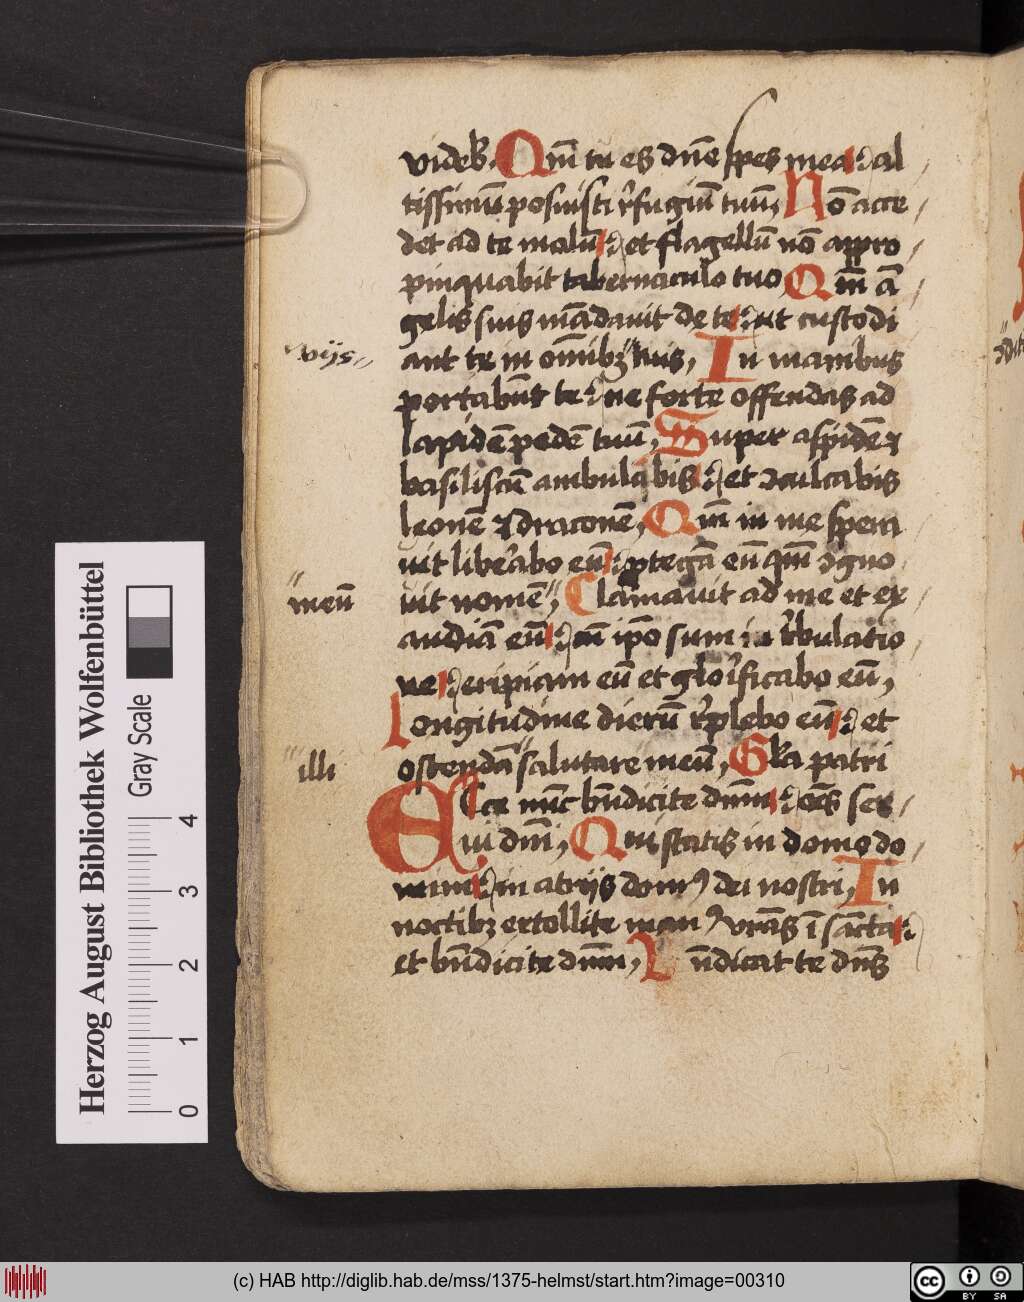 videb. Qm̄ tu es dn̄e spes mea : al
tissimū posuisti r̓fugiū tuū, Nō acce
det ad te malū : et flagellū nō appro
pinquabit tabernaculo tuo, Qm̄ ā
gelis suis mādauit de te : ut custodi
vijs
ant te in om̄ibꝫ tuis, In manibus
portabūt te : ne forte offendas ad
lapidē pedē tuū, Super aspidē ⁊
basiliscū ambulabis : et ꝯculcabis
leonē ⁊ draconē, Qm̄ in me spera
uit liber̓abo eū : ꝓtegā eū qm̄ ꝯgno
meū
uit nomē, Clamauit ad me et ex
audiā eū : cū ip̄o sum in tr̓bulatio
ne : eripiam eū et glor̓ificabo eū,
Longitudine dierū r̓plebo eū : et
illi
ostendā salutare meū, Gl̓ia patri
Ecce nūc bn̄dicite dn̄m : oēs ser
ui dn̄i, Qui statis in domo do
mini : in atrijs domꝰ dei nostri, In
noctibꝫ extollite manꝰ vr̄as ī sācta :
et bn̄dicite dn̄m, Bn̄dicat te dn̄s
Herzog August Bibliothek Wolfenbüttel
Gray Scale
0 1 2 3 4
(c) HAB http://diglib.hab.de/mss/1375-helmst/start.htm?image=00310
cc BY SA